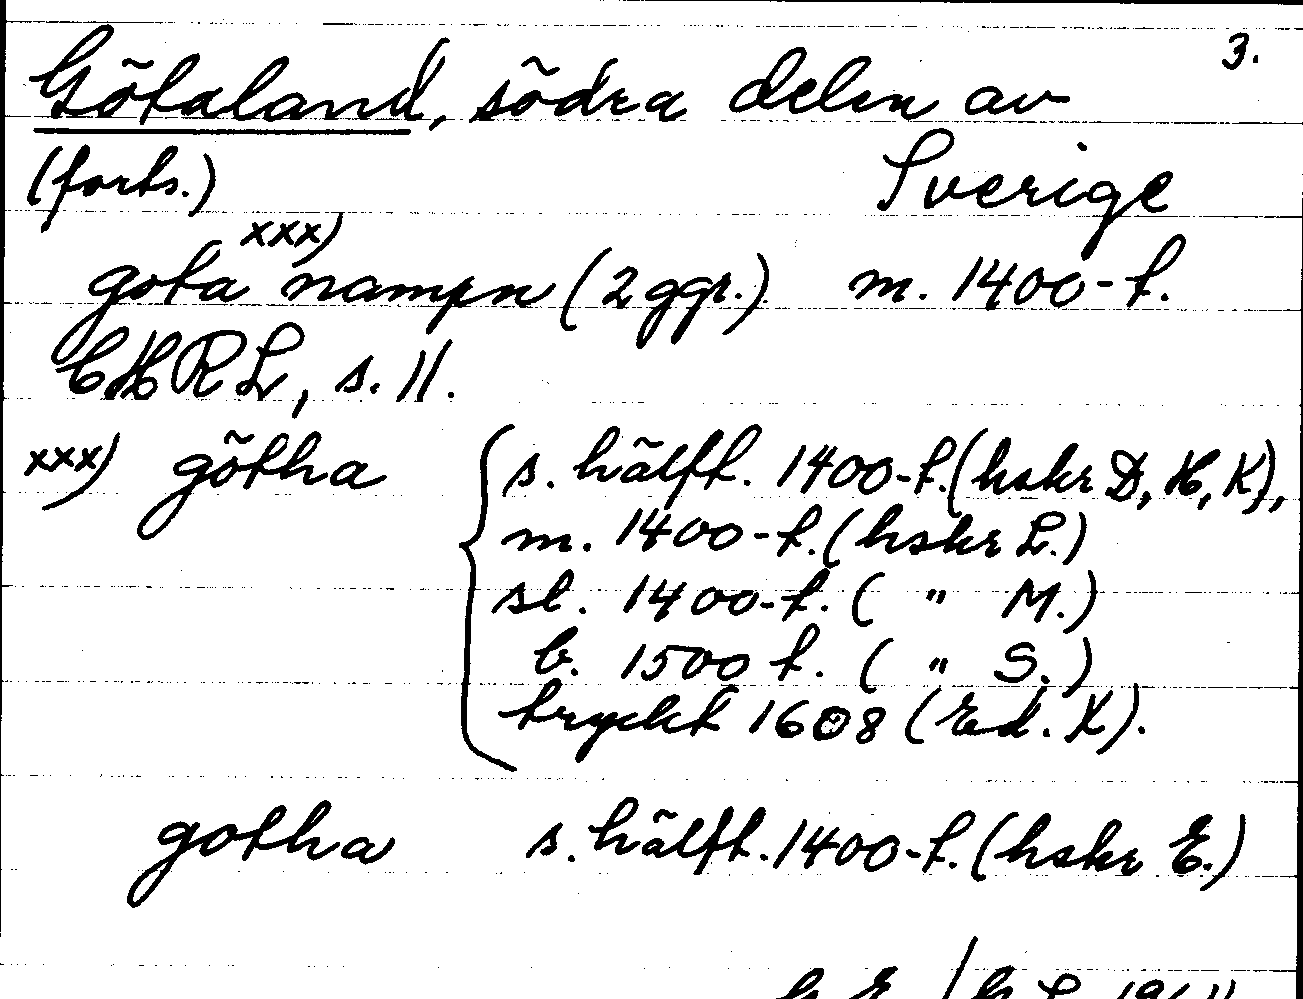 3.
Götaland, södra delen av
(forts.) Sverige
gota xxx) nampn (2 ggr.) m. 1400-t.
CHRL, s. 11.
xxx) götha { s. hälft. 1400-t. (hskr D, H, K),
m. 1400-t. (hskr L.)
sl. 1400-t. ( " M.)
b. 1500 t. ( " S.)
tryckt 1608 (Ed. X).
gotha s. hälft. 1400-t. (hskr E.)